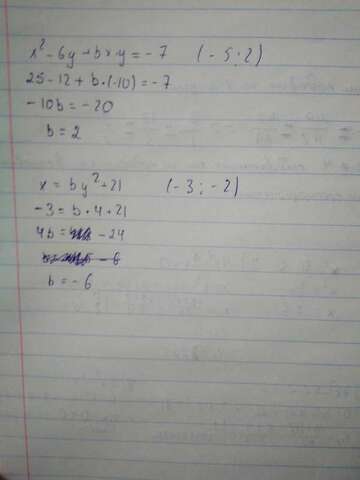 x² - 6y + bxy = -7 (-5; 2)
25 - 12 + b·(-10) = -7
-10b = -20
b = 2
x = by² + 21 (-3; -2)
-3 = b·4 + 21
4b = -24
b = -6